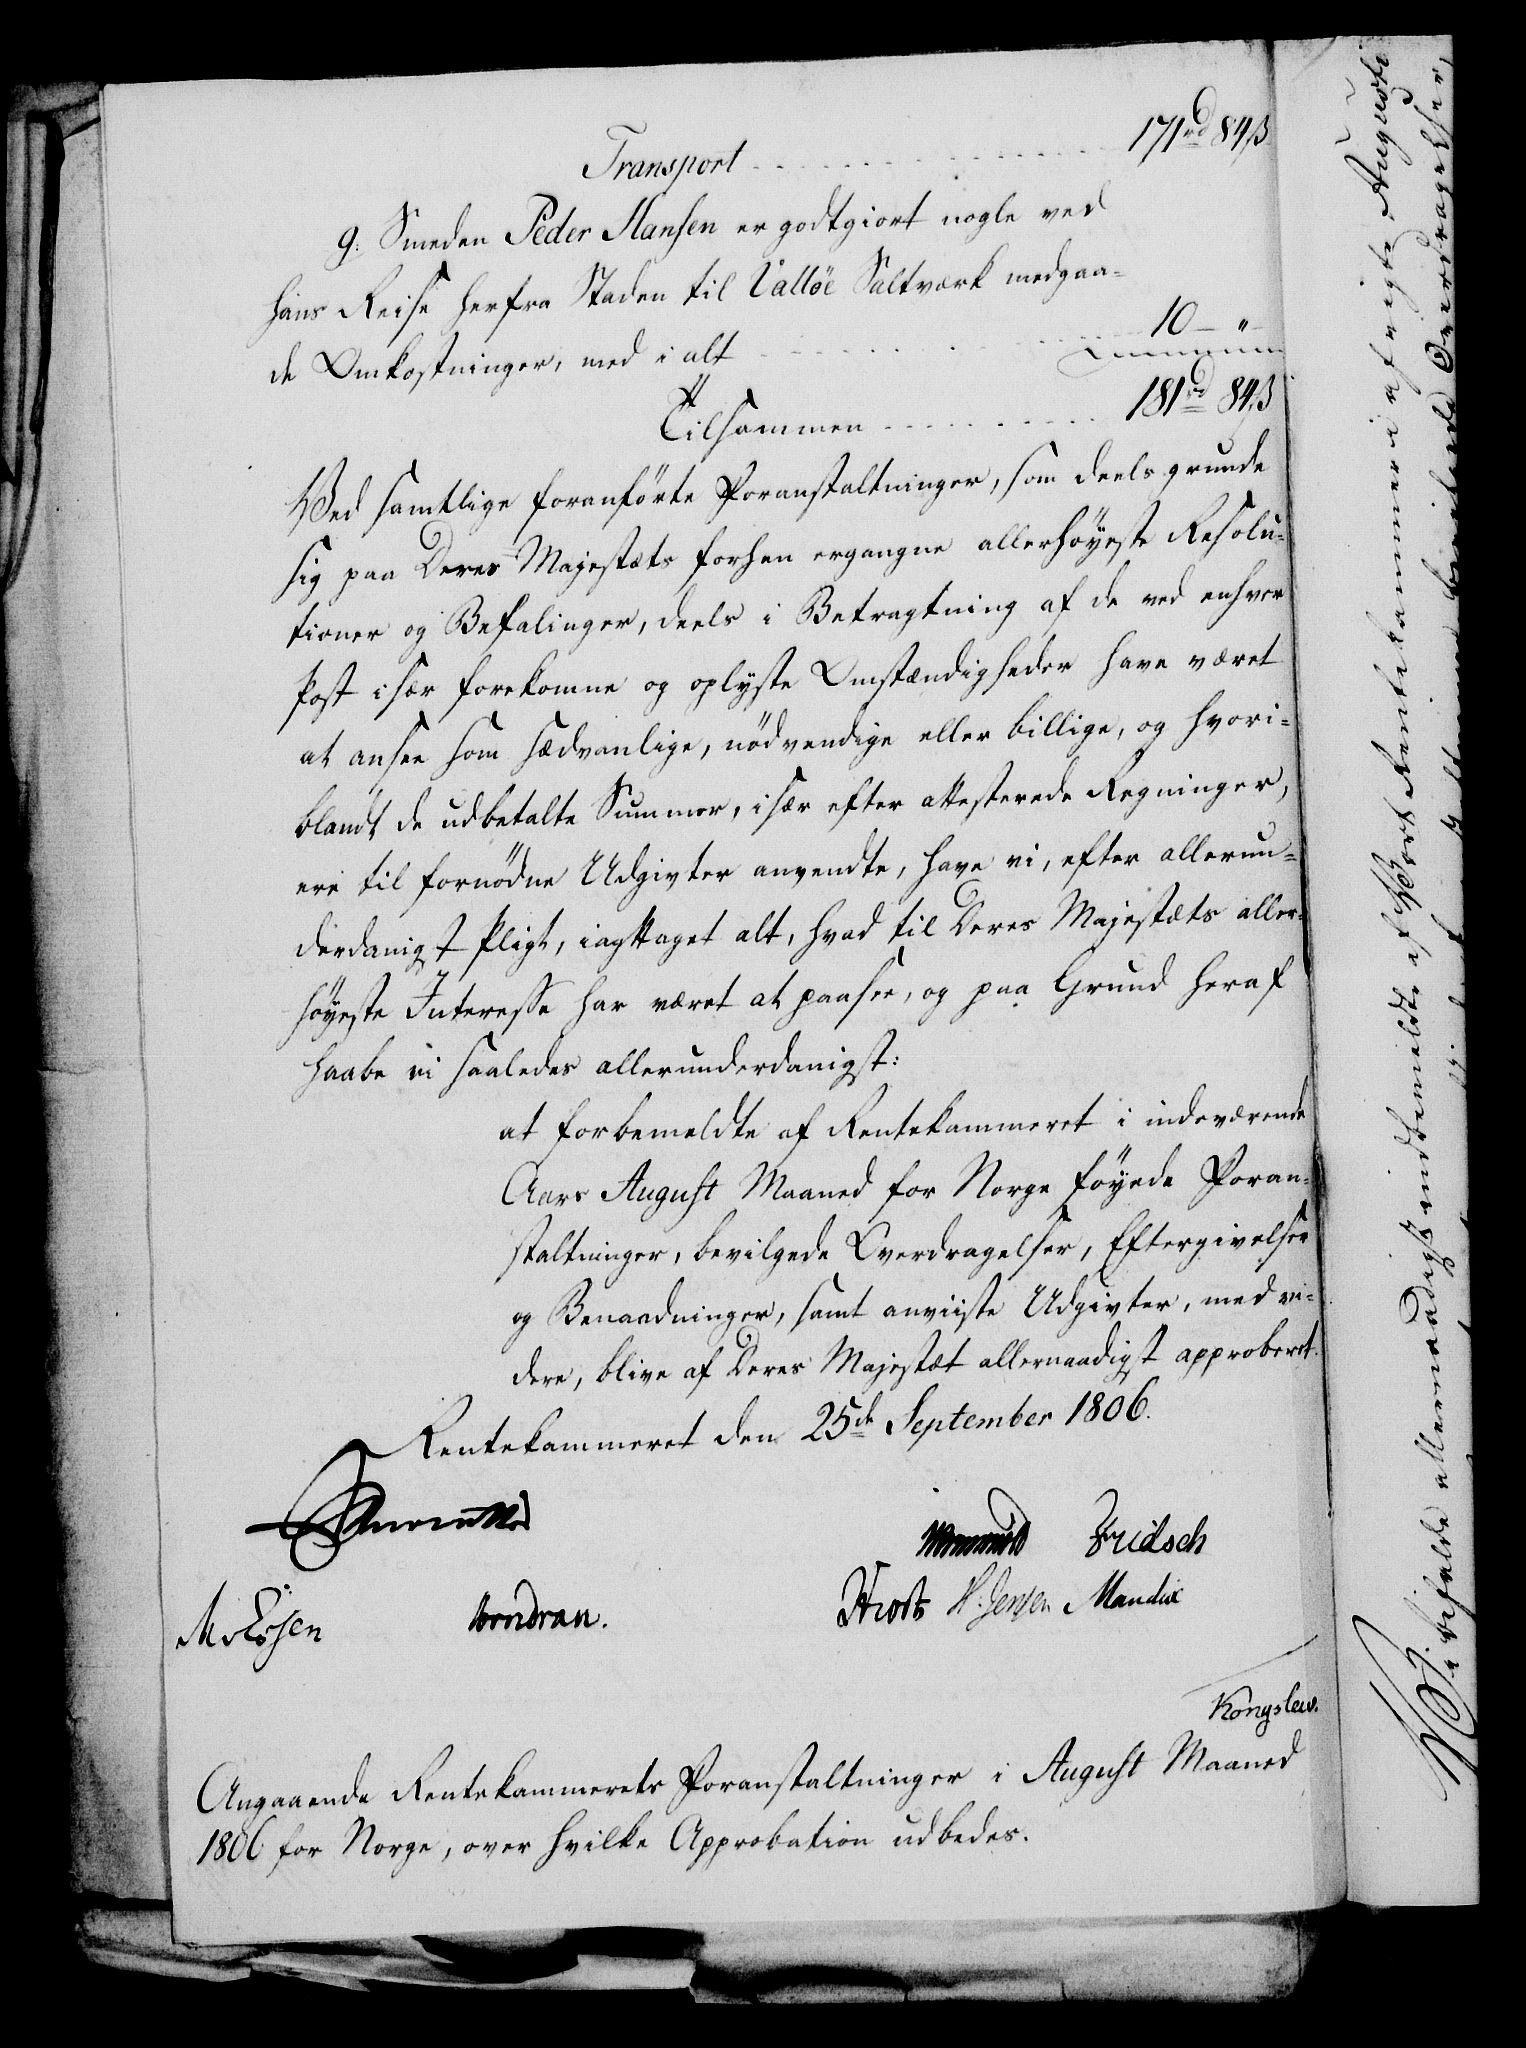 Transport - - - - - - - - - - 171rd 84ß
9. Smeden Peder Hansen er godtgiort nogle ved
hans Reise herfra Staden til Valløe Saltværk medgaa-
de Omkostninger, med i alt - - - - - - 10 - "
Tilsammen - - - - - - - - 181rd 84ß
Ved samtlige foranførte Foranstaltninger, som deels grunde
sig paa Deres Majestæts forhen ergangne allerhøyeste Resolu-
tioner og Befalinger, deels i Betragtning af de ved enhver
Post især forekomne og oplyste Omstændigheder have været
at ansee som sædvanlige, nödvendige eller billige, og hvori-
blandt de udbetalte Summer, især efter attesterede Regninger,
ere til fornödne Udgivter anvendte, have vi, efter allerun-
derdanigst Pligt, iagttaget alt, hvad til Deres Majestæts aller-
høyeste Interesse har været at paasee, og paa Grund heraf
haabe vi saaledes allerunderdanigst:
at forbemeldte af Rentekammeret i indeværende
Aars August Maaned for Norge føyede Foran-
staltninger, bevilgede Overdragelser, Eftergivelser
og Benaadninger, samt anviiste Udgivter, med vi-
dere, blive af Deres Majestæt allernaadigst approberet.
Rentekammeret den 25de September 1806.
Fridsch
M v Essen Wendran. Hiorth H. Jensen Mandix
Kongslew.
Angaaende Rentekammerets Foranstaltninger i August Maaned
1806 for Norge, over hvilke Approbation udbedes.
Vi bifalde allernaadigst indbemeldte af Vort Rentekammer i afvigte Augusti